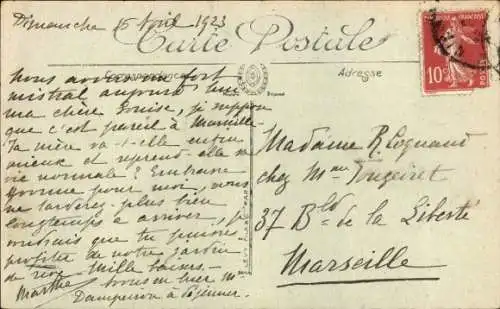 Dimanche 15 Avril 1923
Carte Postale
Correspondance
Adresse
Nous avons un fort
mistral aujourd'hui
ma chère Louise, je suppose
que c'est pareil à Marseille.
Ta mère va-t-elle enfin
mieux et reprend-elle sa
vie normale? Embrasse
Yvonne pour moi, vous
ne tarderez plus bien
longtemps à arriver, je
disais que tu puisses
profiter de notre jardin
de Mille baisers.
Marthe
bous en hier Mr
à
Madame R. Coquand
chez Mme
37 Bld de la Liberté
Marseille
10c
POSTES